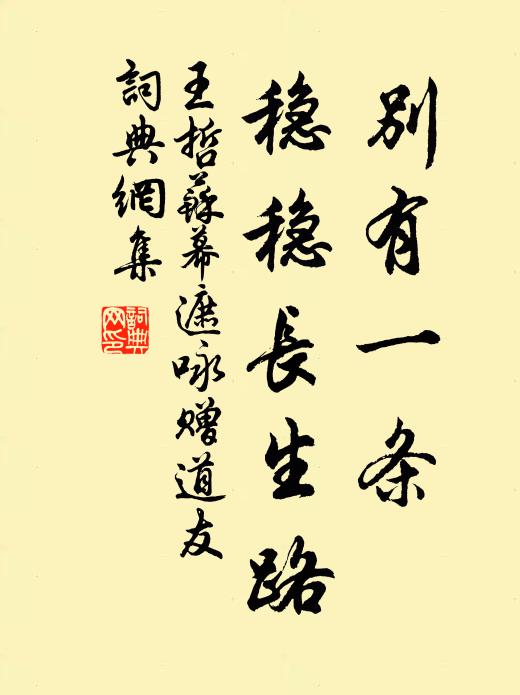 别有一条
稳稳長生路
王哲蘇幕遮咏赠道友
詞典網集
詞典
网印